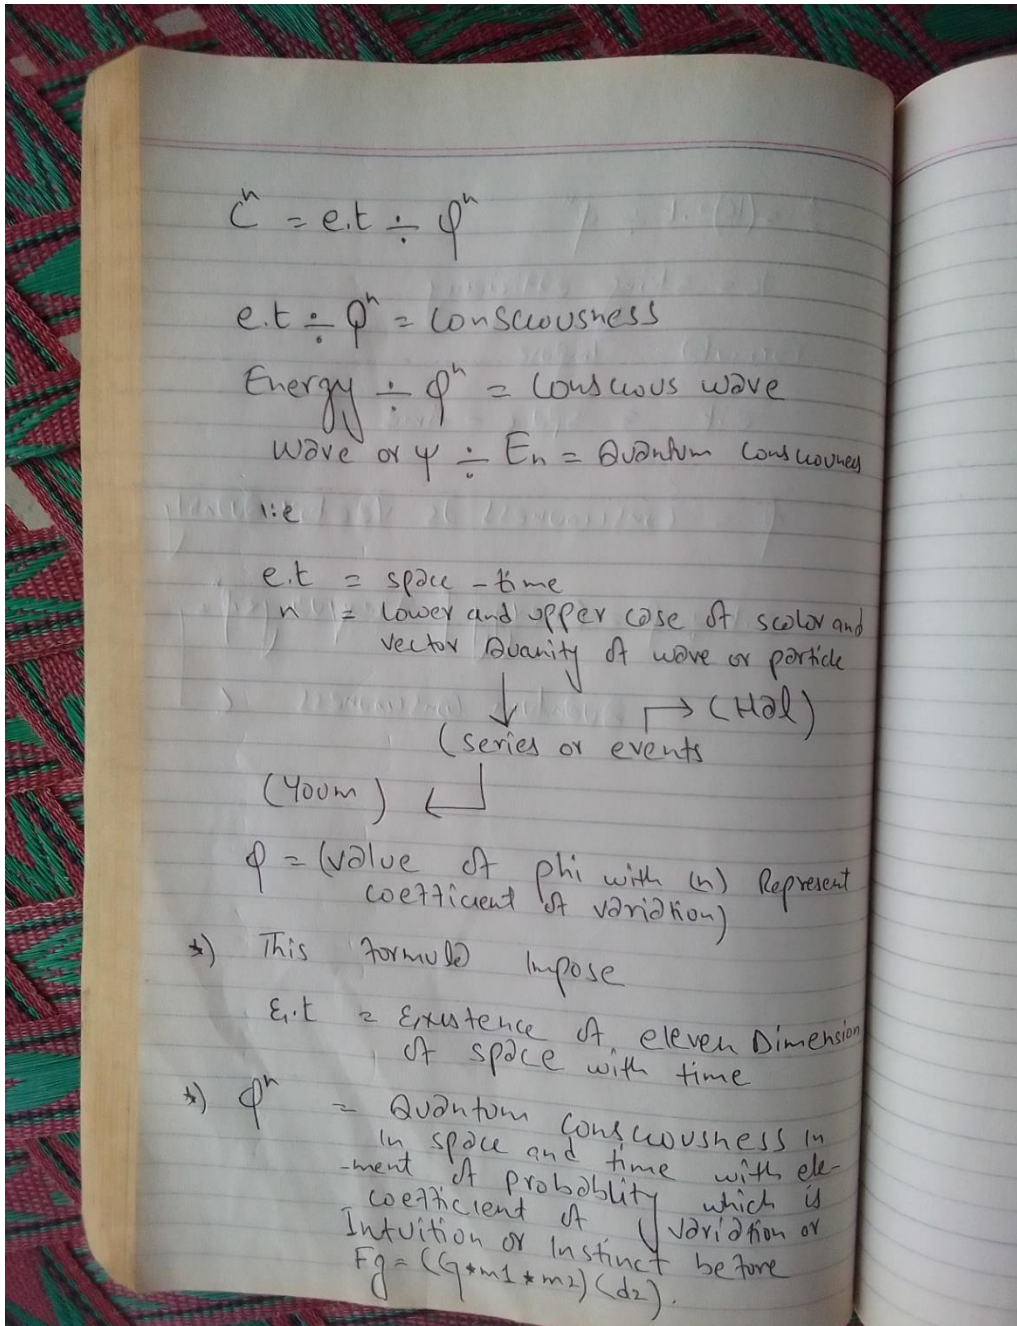 Cⁿ = e.t ÷ φⁿ
e.t ÷ φⁿ = Consciousness
Energy ÷ φⁿ = Conscious wave
wave or ψ ÷ En = Quantum Consciousness
i:e
e.t = space - time
n = Lower and upper case of scalor and
vector Quanity of wave or particle
↓ → (Hal)
(series or events
(Youm) ←
φ = (value of phi with (n) Represent
coefficient of variation)
*) This formula Impose
E.t = Existence of eleven Dimension
of space with time
*) φⁿ = Quantum Consciousness in
in space and time with ele-
-ment of probablity which is
coefficient of variation or
Intuition or Instinct before
Fg = (G*m1*m2)(d2).